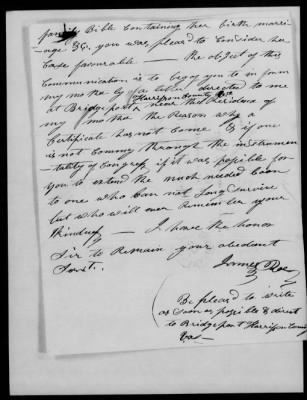 family Bible Containing her birth marri-
-age &C. you was pleasd to Concider her
Case favourable — the object of this
Communication is to beg of you to inform
my mother by a letter directed to me
at Bridgeport Harrison County Va near the Residence of
my mother the Reason why a
Certificate has not Come & if one
is not Coming through the instrumen
-tality of Congress if it was possible for
you to extend the much needed boon
to one who Can not Long Survive
but who will ever Remember your
Kindness — I have the honor
Sir to Remain your obedient
Servt.
James
Be pleasd to write
as Soon as possible & direct
to Bridgeport Harrison County
Va —